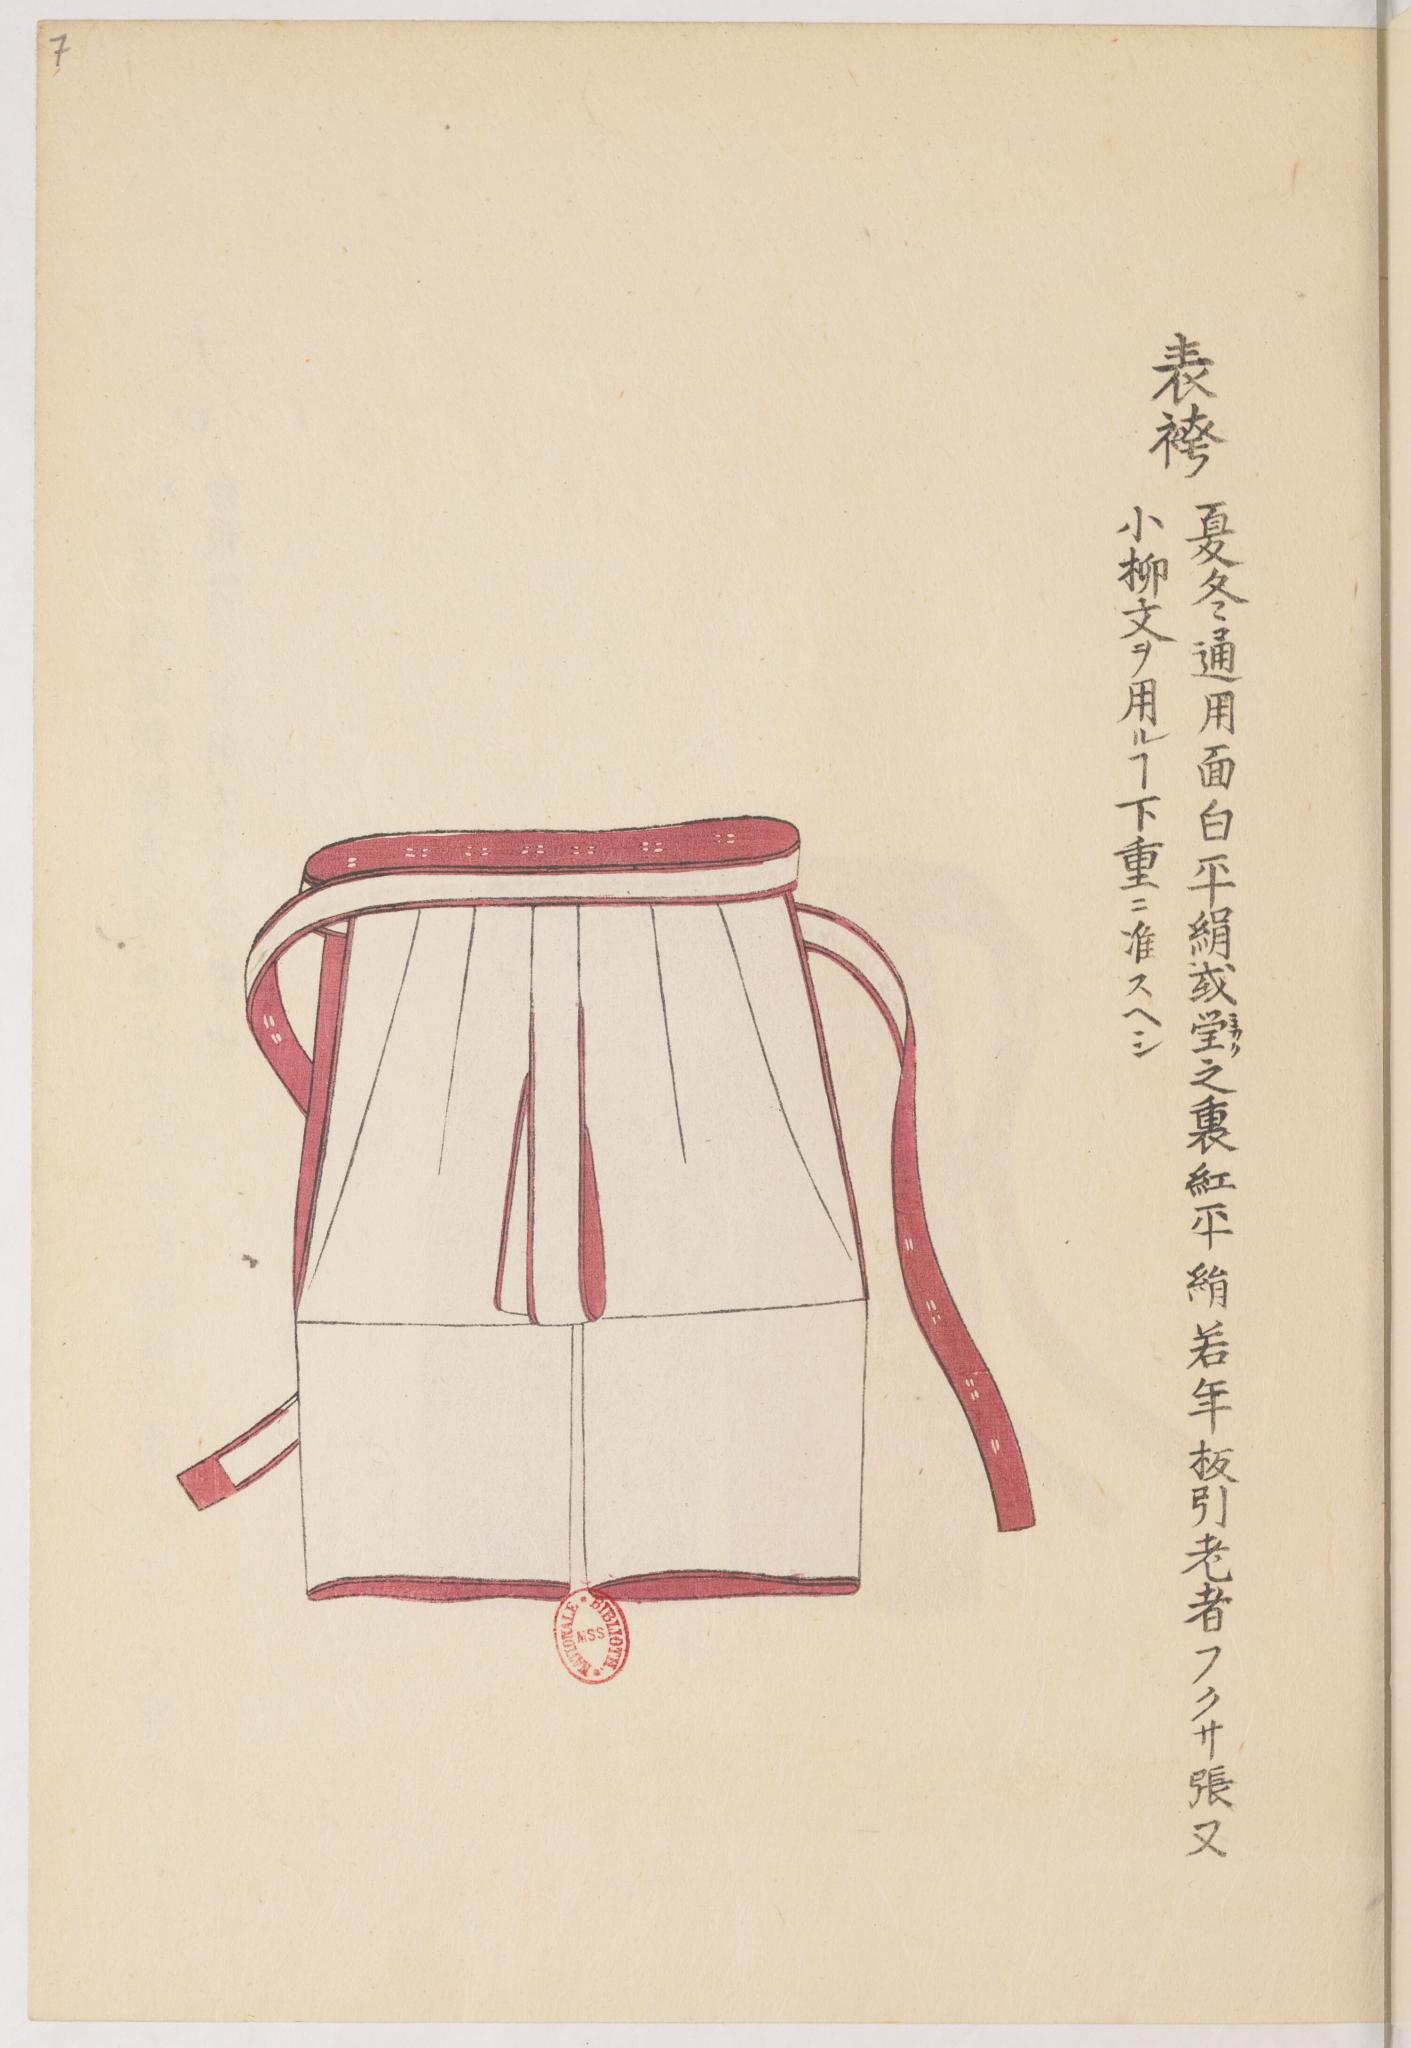 表袴
夏冬通用面白平絹或瑩之裏紅平絹若年板引老者フクサ張又
ミカク
小柳文ヲ用ルヿ下重ニ准スヘシ
7
BIBLIOTH. NATIONALE
MSS